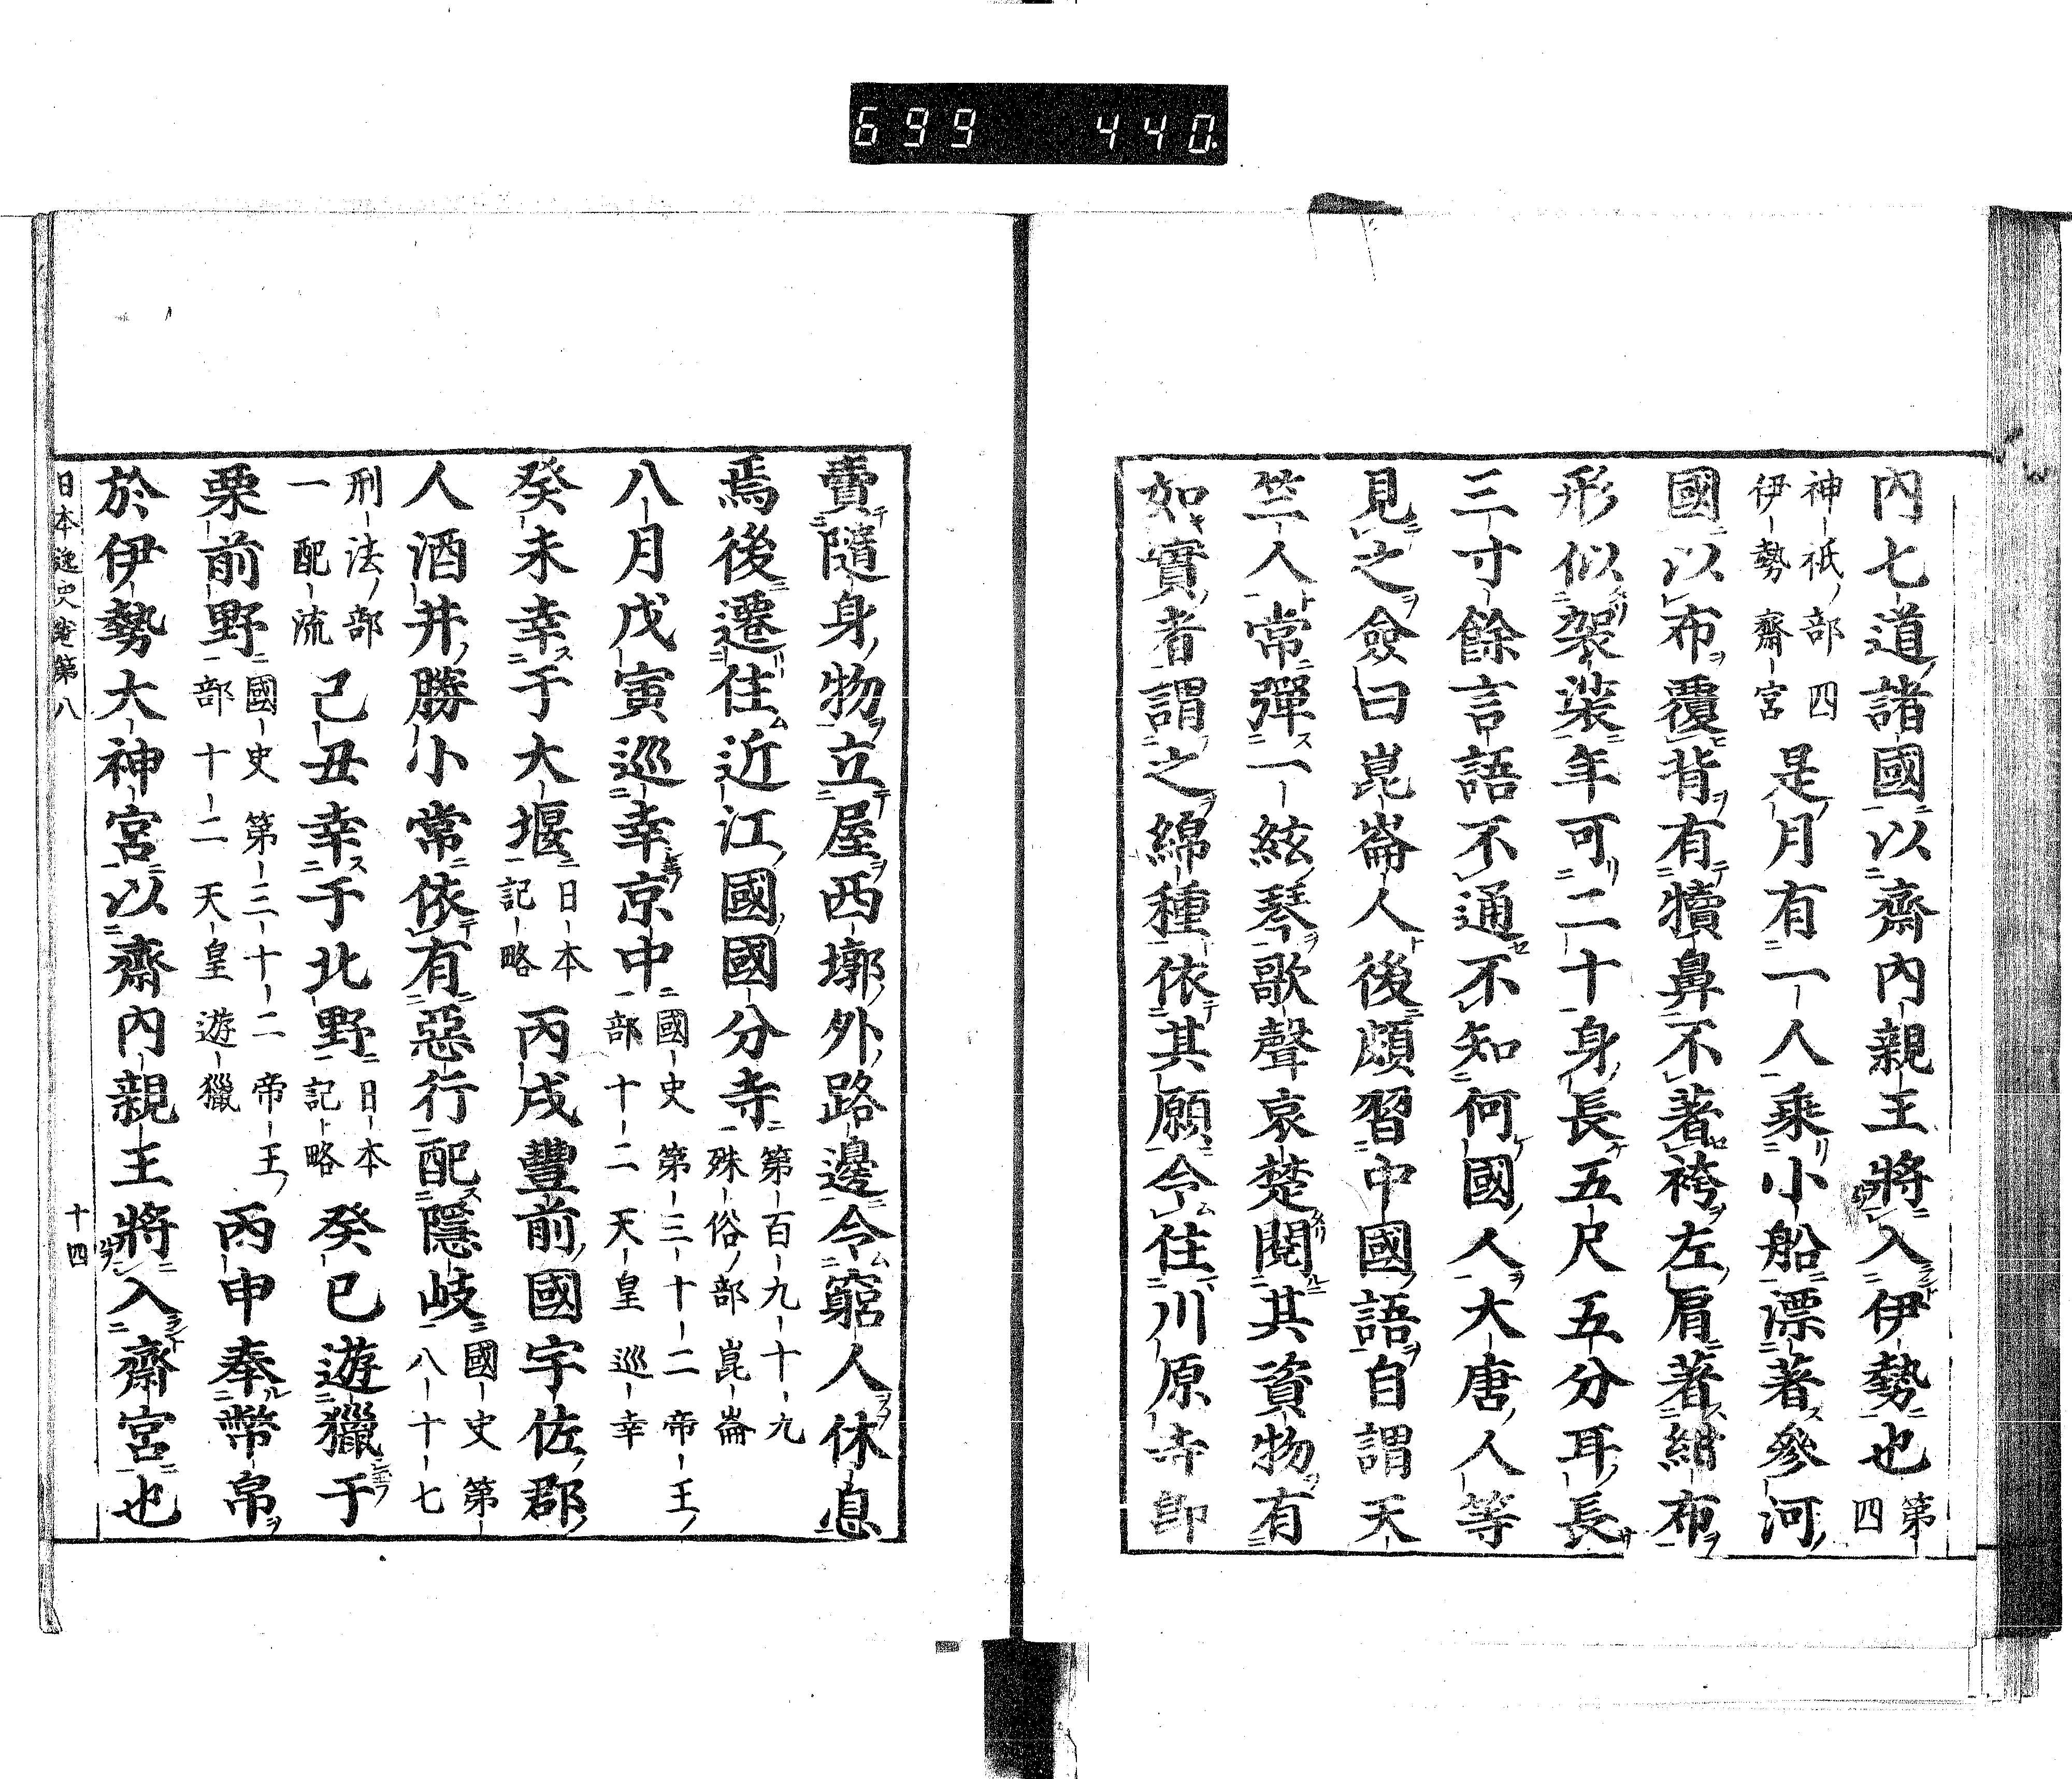 699 440
內七道諸國以齋內親王將入伊勢也 第四
神祇部四 伊勢齋宮 是月有一人乘小船漂著參河
國以布覆背有犢鼻不著袴左肩著紺布
形似袈裟年可二十身長五尺五分耳長
三寸餘言語不通不知何國人大唐人等
見之僉曰崑崙人後頗習中國語自謂天
竺人常彈一絃琴歌聲哀楚閱其資物有
如實者謂之綿種依其願令住川原寺即
賣隨身物立屋西墎外路邊令窮人休息
焉後遷住近江國國分寺 第百九十九 殊俗部 崑崙
八月戊寅巡幸京中 國史第三十二帝王部十二 天皇巡幸
癸未幸于大堰 日本記略 丙戌豐前國宇佐郡
人酒井勝小常依有惡行配隱岐 國史第八十七
刑法部一 配流 己丑幸于北野 日本記略 癸巳遊獵于
栗前野 國史第三十二帝王部十二 天皇遊獵 丙申奉幣帛
於伊勢大神宮以齋內親王將入齋宮也
日本逸史卷第八 十四